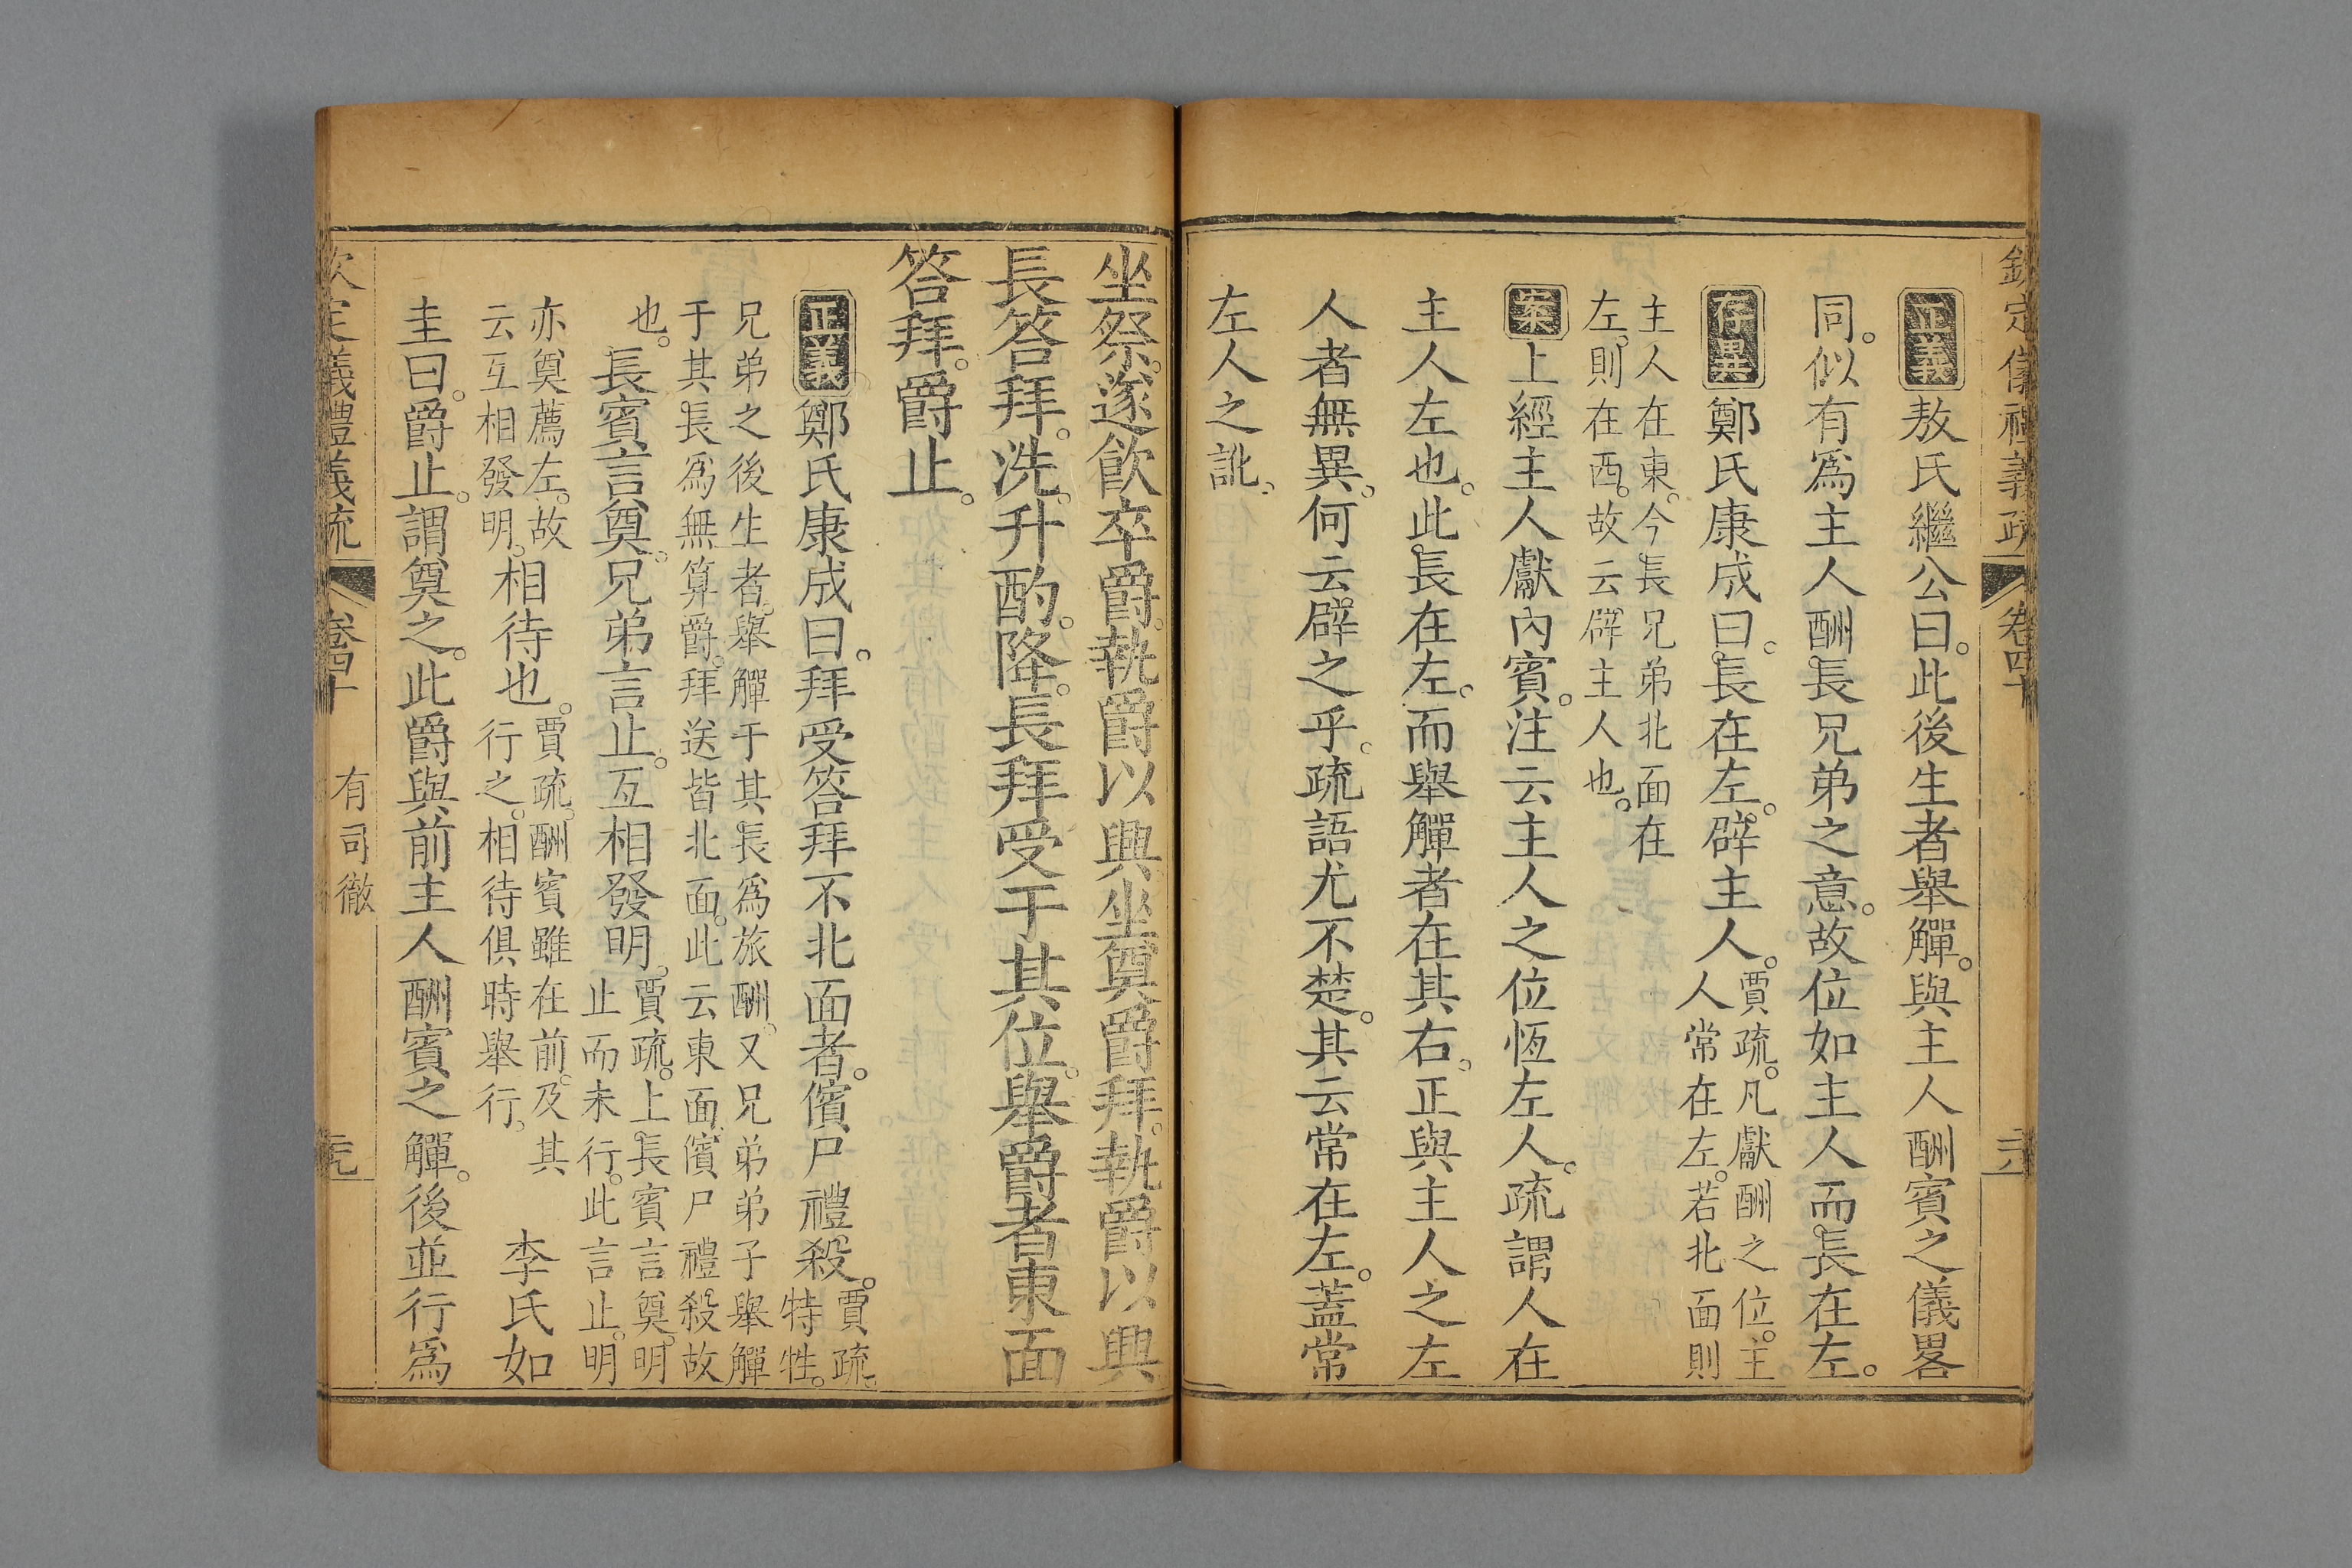 欽定儀禮義疏 卷四十
正義敖氏繼公曰。此後生者舉觶。與主人酬賓之儀畧
同。似有爲主人酬長兄弟之意。故位如主人而長在左。
存異鄭氏康成曰。長在左。辟主人。賈疏。凡獻酬之位。主人常在左。若北面則
主人在東。今長兄弟北面在左。則在西。故云辟主人也。
案上經主人獻內賓。注云主人之位恆左人。疏謂人在
主人左也。此長在左。而舉觶者在其右。正與主人之左
人者無異。何云辟之乎。疏語尤不楚。其云常在左。蓋常
左人之訛。
坐祭。遂飲卒爵。執爵以興。坐奠爵拜。執爵以興
長答拜。洗。升酌。降。長拜受于其位。舉爵者東面
答拜。爵止。
正義鄭氏康成曰。拜受答拜不北面者。儐尸禮殺。賈疏。特牲。
兄弟之後生者。舉觶于其長爲旅酬。又兄弟弟子舉觶
于其長爲無算爵。拜送皆北面。此云東面。儐尸禮殺故
也。長賓言奠。兄弟言止。互相發明。賈疏。上長賓言奠。明止而未行。此言止。明
亦奠薦左。故云互相發明。相待也。賈疏。酬賓雖在前。及其行之。相待俱時舉行。李氏如
圭曰。爵止。謂奠之。此爵與前主人酬賓之觶。後並行爲
欽定儀禮義疏 卷四十 有司徹